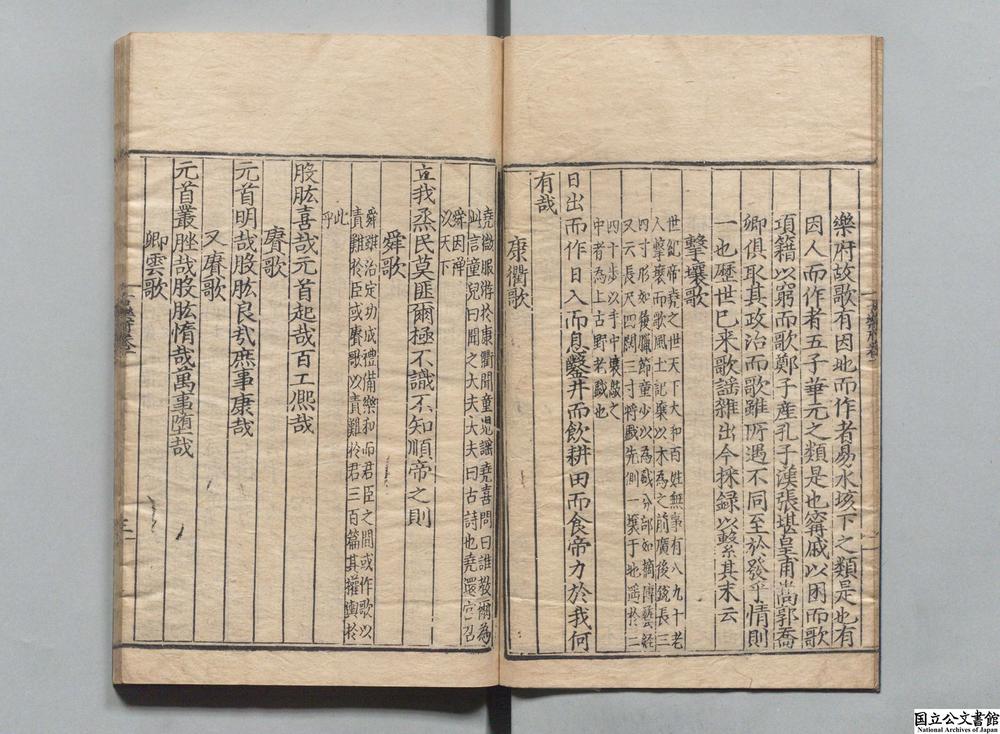 樂府故歌有因地而作者易水垓下之類是也有
因人而作者五子華元之類是也甯戚以困而歌
項籍以窮而歌鄭子産孔子漢張堪皇甫嵩郭喬
卿俱取其政治而歌雖所遇不同至於發乎情則
一也歷世已来歌謡雜出今採録以繫其末云
擊壤歌
世紀帝堯之世天下大和百姓無事有八九十老
人擊壤而歌風土記壤以木為之前廣後銳長三
四寸形如履臘節童少以為戲分部如擿博藝經
又云長尺四闊三寸將戲先側一壤于地遥於三
四十步以手中壤敲之
中者為上古野老戲也
日出而作日入而息鑿井而飲耕田而食帝力於我何
有哉
康衢歌
堯微服游於康衢聞童児謡堯喜問曰誰教爾為
此言童兒曰聞之大夫大夫曰古詩也堯還宫召
舜因禅
以天下
立我烝民莫匪爾極不識不知順帝之則
舜歌
舜雖治定功成禮備樂和而君臣之間或作歌以
責難於臣或賡歌以責難於君三百篇其權輿於
此
乎
股肱喜哉元首起哉百工熙哉
賡歌
元首明哉股肱良哉庶事康哉
又賡歌
元首叢脞哉股肱惰哉萬事墮哉
卿雲歌
三
国立公文書館
National Archives of Japan